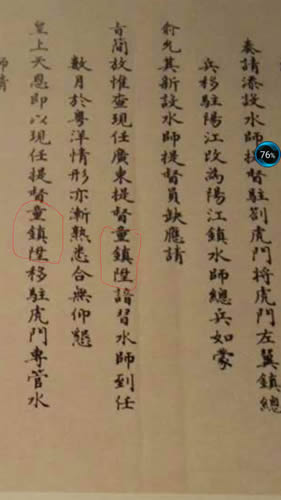 奏請添設水師提督駐劄虎門將虎門左翼鎮總
兵移駐陽江改為陽江鎮水師總兵如蒙
俞允其新設水師提督員缺應請
旨簡放惟查現任廣東提督童鎮陞諳習水師到任
數月於粵洋情形亦漸熟悉合無仰懇
皇上天恩即以現任提督童鎮陞移駐虎門專管水
師
76%